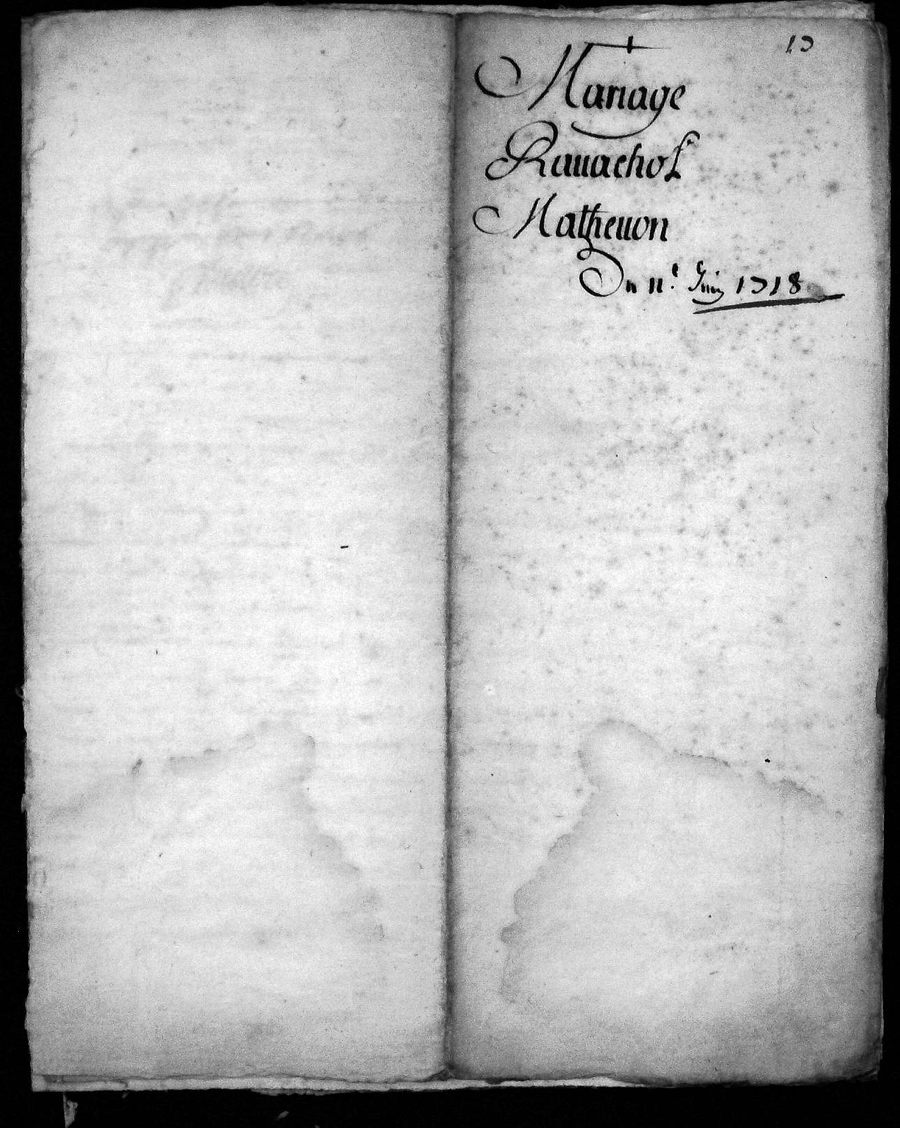 13
Mariage
Rauachol
Matheuon
Du 11e Juin 1718